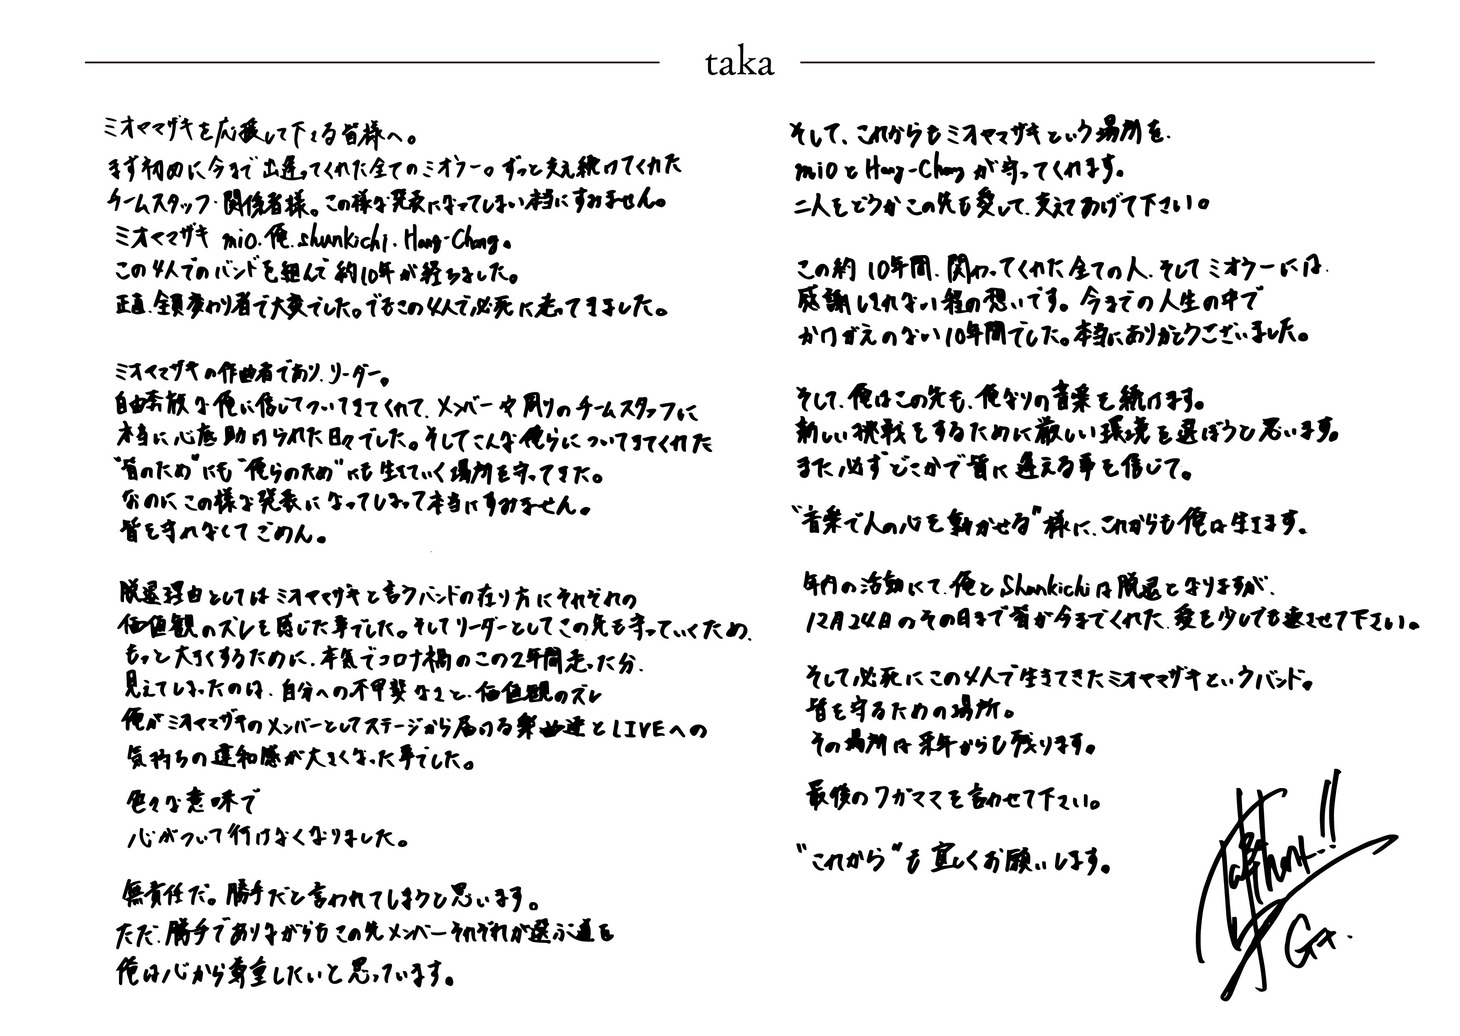 taka
ミオヤマザキを応援して下さる皆様へ。
まず初めに今まで出逢ってくれた全てのミオラー。ずっと支え続けてくれた
チームスタッフ・関係者様。この様な発表になってしまい本当にすみません。
ミオヤマザキ mio.俺.shunkichi.Hang-Chang。
この4人でのバンドを組んで約10年が経ちました。
正直、全員変わり者で大変でした。でもこの4人で必死に走ってきました。
ミオヤマザキの作曲者であり、リーダー。
自由奔放な俺に信じてついてきてくれて、メンバーや周りのチームスタッフに
本当に心底助けられた日々でした。そしてこんな俺らについてきてくれた
"皆のため"にも"俺らのため"にも生きていく場所を守ってきた。
なのにこの様な発表になってしまって本当にすみません。
皆を守れなくてごめん。
脱退理由としてはミオヤマザキと言うバンドの在り方にそれぞれの
価値観のズレを感じた事でした。そしてリーダーとしてこの先も守っていくため、
もっと大きくするために、本気でコロナ禍のこの2年間走った分、
見えてしまったのは、自分への不甲斐なさと、価値観のズレ
俺がミオヤマザキのメンバーとしてステージから届ける楽曲達とLIVEへの
気持ちの違和感が大きくなった事でした。
色々な意味で
心がついて行けなくなりました。
無責任だ。勝手だと言われてしまうと思います。
ただ、勝手でありながらもこの先メンバーそれぞれが選ぶ道を
俺は心から尊重したいと思っています。
そして、これからもミオヤマザキという場所を、
mioとHang-Changが守ってくれます。
二人をどうかこの先も愛して、支えてあげて下さい。
この約10年間、関わってくれた全ての人、そしてミオラーには、
感謝しきれない程の想いです。今までの人生の中で
かけがえのない10年間でした。本当にありがとうございました。
そして、俺はこの先も、俺なりの音楽を続けます。
新しい挑戦をするために厳しい環境を選ぼうと思います。
また必ずどこかで皆に逢える事を信じて。
"音楽で人の心を動かせる"様に、これからも俺は生きます。
年内の活動にて、俺とShunkichiは脱退となりますが、
12月24日のその日まで皆が今までくれた、愛を少しでも返させて下さい。
そして必死にこの4人で生きてきたミオヤマザキというバンド。
皆を守るための場所。
その場所は来年からも残ります。
最後のワガママを言わせて下さい。
"これから"も宜しくお願いします。